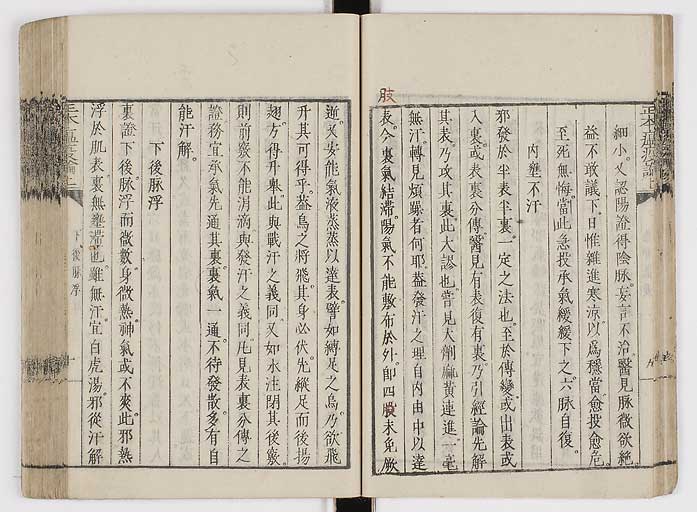 細小又認陽證得陰脉妄言不治醫見脉微欲絕
益不敢議下日惟雜進寒涼以爲穩當愈投愈危
至死無悔當此急投承氣緩緩下之六脉自復
內壅不汗
邪發於半表半裏一定之法也至於傳變或出表或
入裏或表裏分傳醫見有表復有裏乃引經論先解
其表乃攻其裏此大謬也嘗見大劑麻黃連進一毫
無汗轉見煩躁者何耶蓋發汗之理自內由中以達
表今裏氣結滯陽氣不能敷布於外即四肢未免厥
肢
逆又安能氣液蒸蒸以達表譬如縛足之鳥乃欲飛
升其可得乎蓋鳥之將飛其身必伏先縱足而後揚
翅方得升舉此與戰汗之義同又如水注閉其後竅
則前竅不能涓滴與發汗之義同凡見表裏分傳之
證務宜承氣先通其裏裏氣一通不待發散多有自
能汗解
下後脉浮
裏證下後脉浮而微數身微熱神氣或不爽此邪熱
浮於肌表裏無壅滯也雖無汗宜白虎湯邪從汗解
下後脉浮